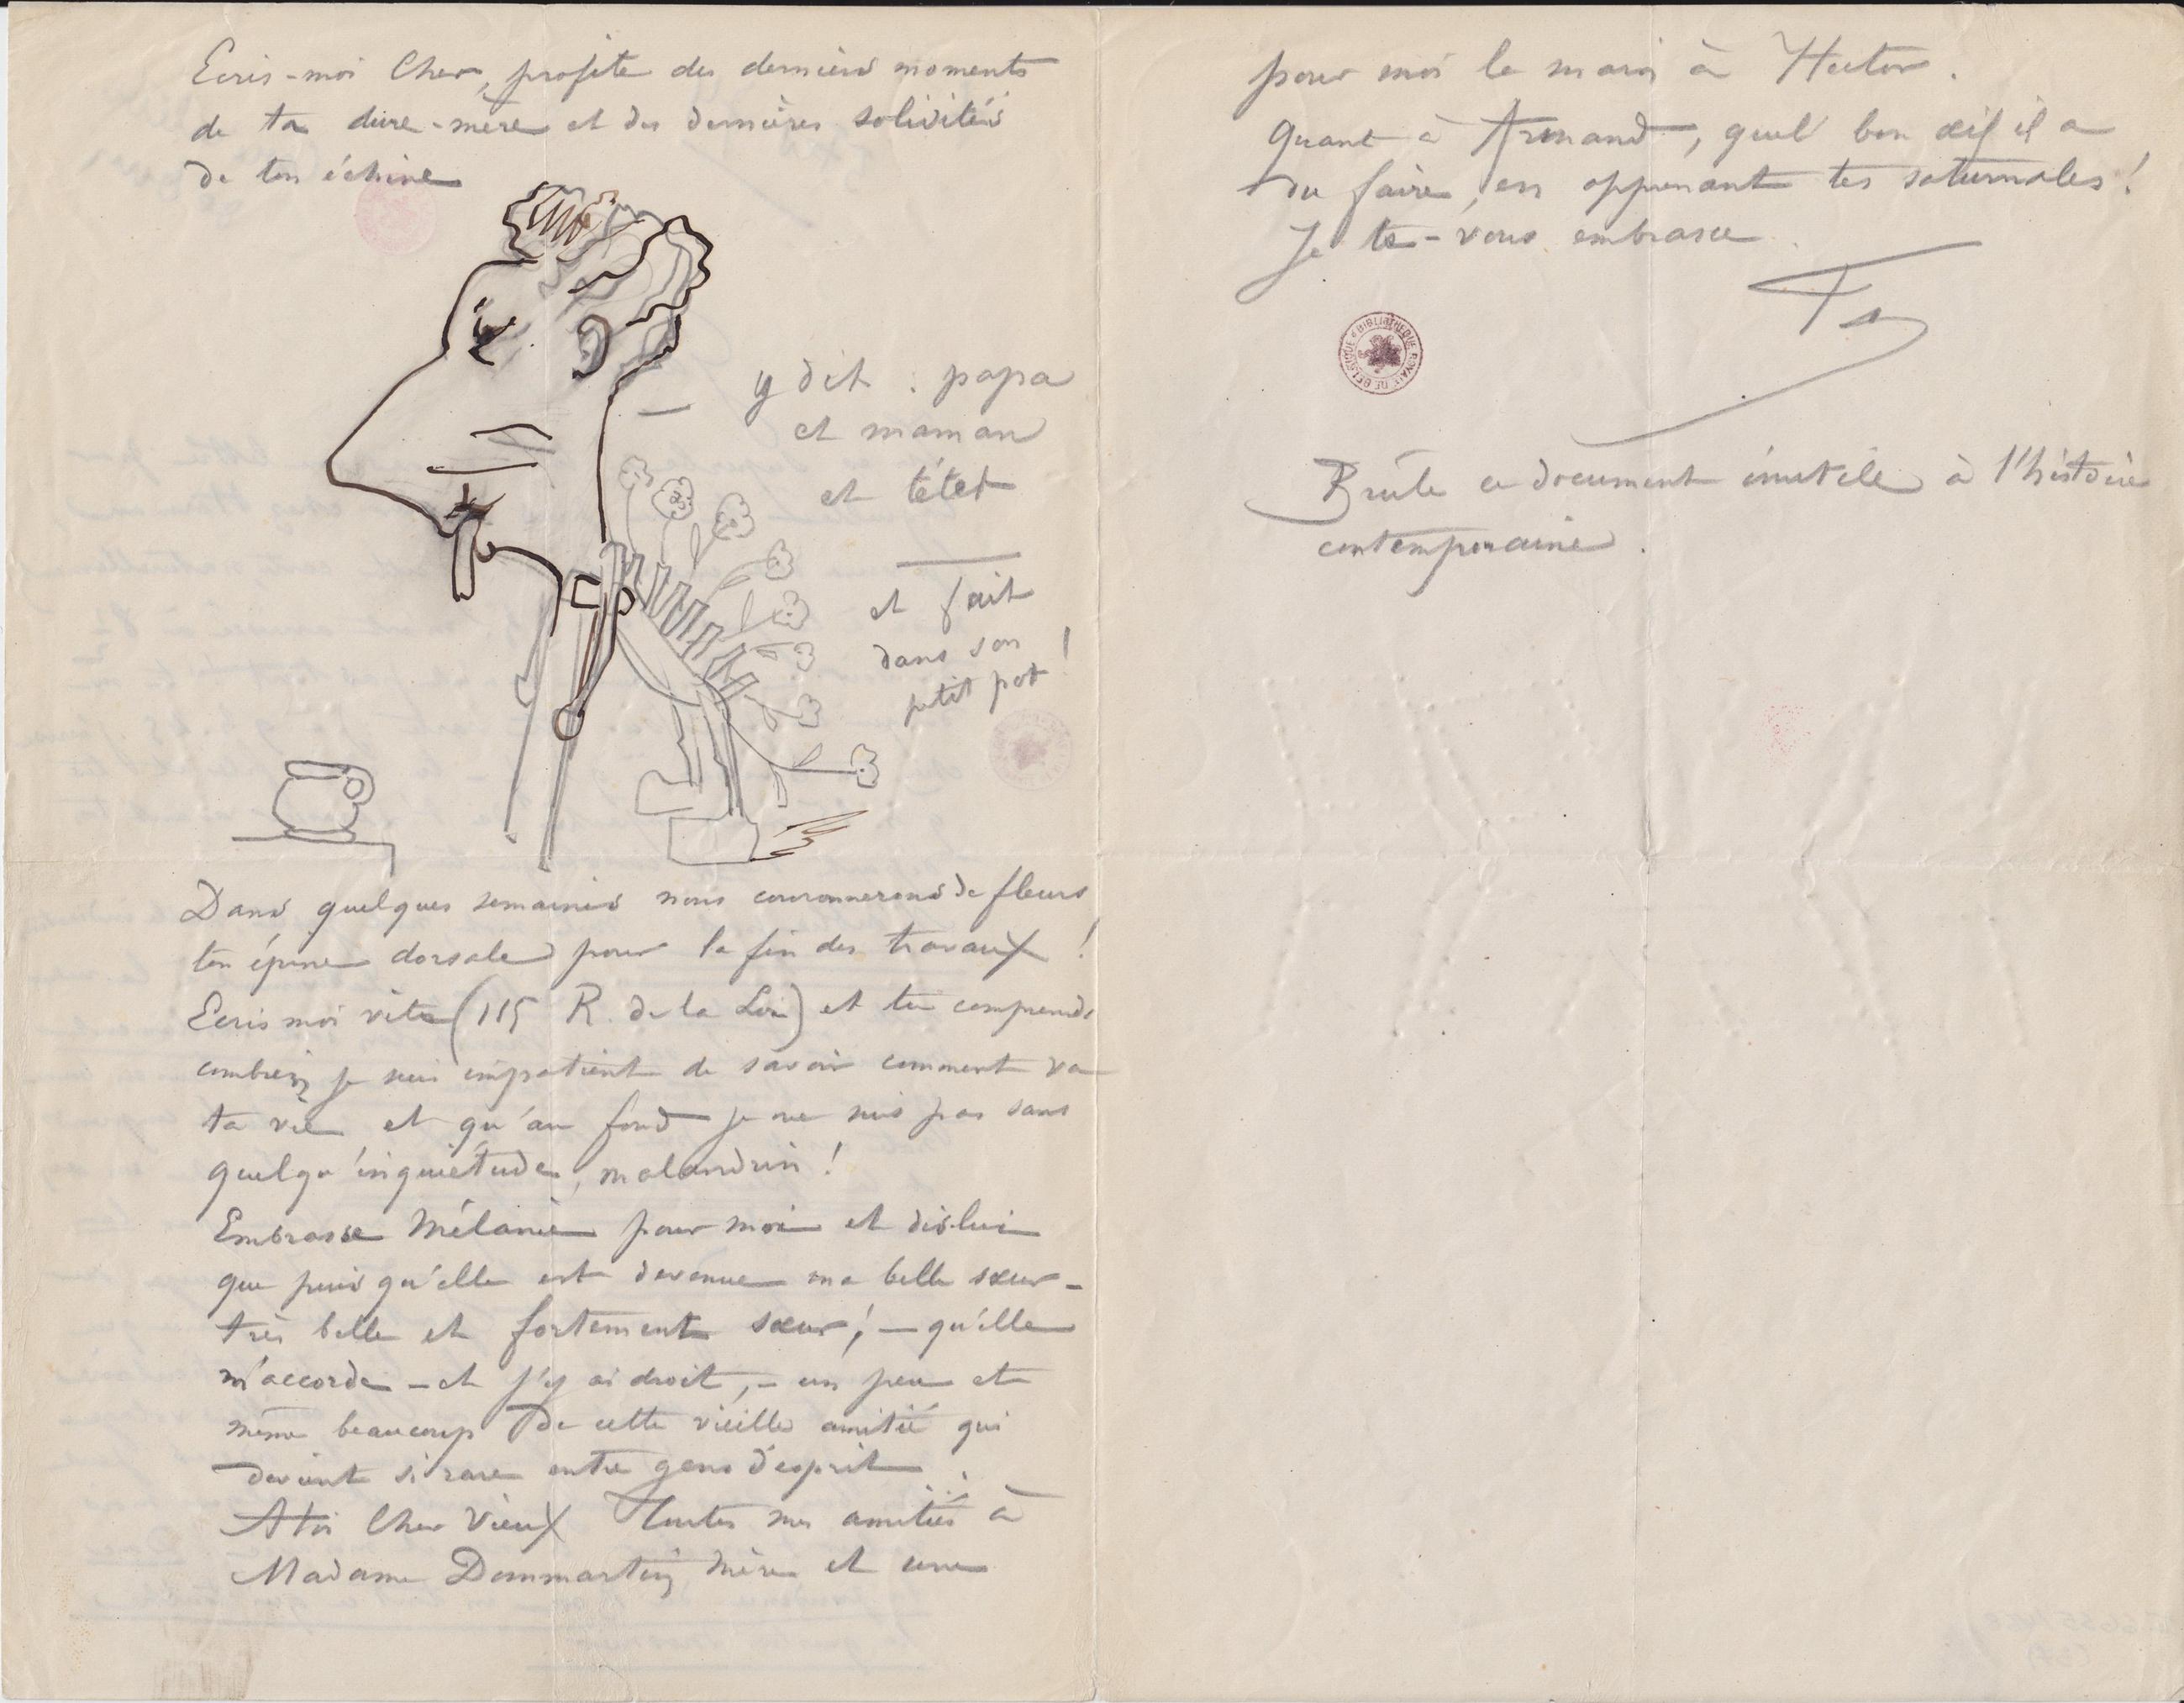 Ecris-moi Cher, profite des derniers moments
de ta dure-mère et des dernières solidités
de ton échine
y dit : papa
et maman
et tétet
et fait
dans son
petit pot !
Dans quelques semaines nous couronnerons de fleurs
ton épine dorsale pour la fin des travaux !
Ecris moi vite (115 R. de la Loi) et tu comprends
combien je suis impatient de savoir comment va
ta vie et qu'au fond je ne suis pas sans
quelqu'inquiétude, malandrin !
Embrasse Mélanie pour moi et dis-lui
que puis qu'elle est devenue ma belle sœur -
très belle et fortement sœur ! — qu'elle
m'accorde - et j'y ai droit, - un peu et
même beaucoup de cette vieille amitié qui
devient si rare entre gens d'esprit
A toi Cher Vieux Toutes mes amitiés à
Madame Dommartin mère et serre
pour moi la main à Hector.
Quant à Armand, quel bon œil il a
du faire, en apprenant tes saturnales !
Je te - vous embrasse
BIBLIOTHEQUE ROYALE DE BELGIQUE
Brûle ce document inutile à l'histoire
contemporaine.